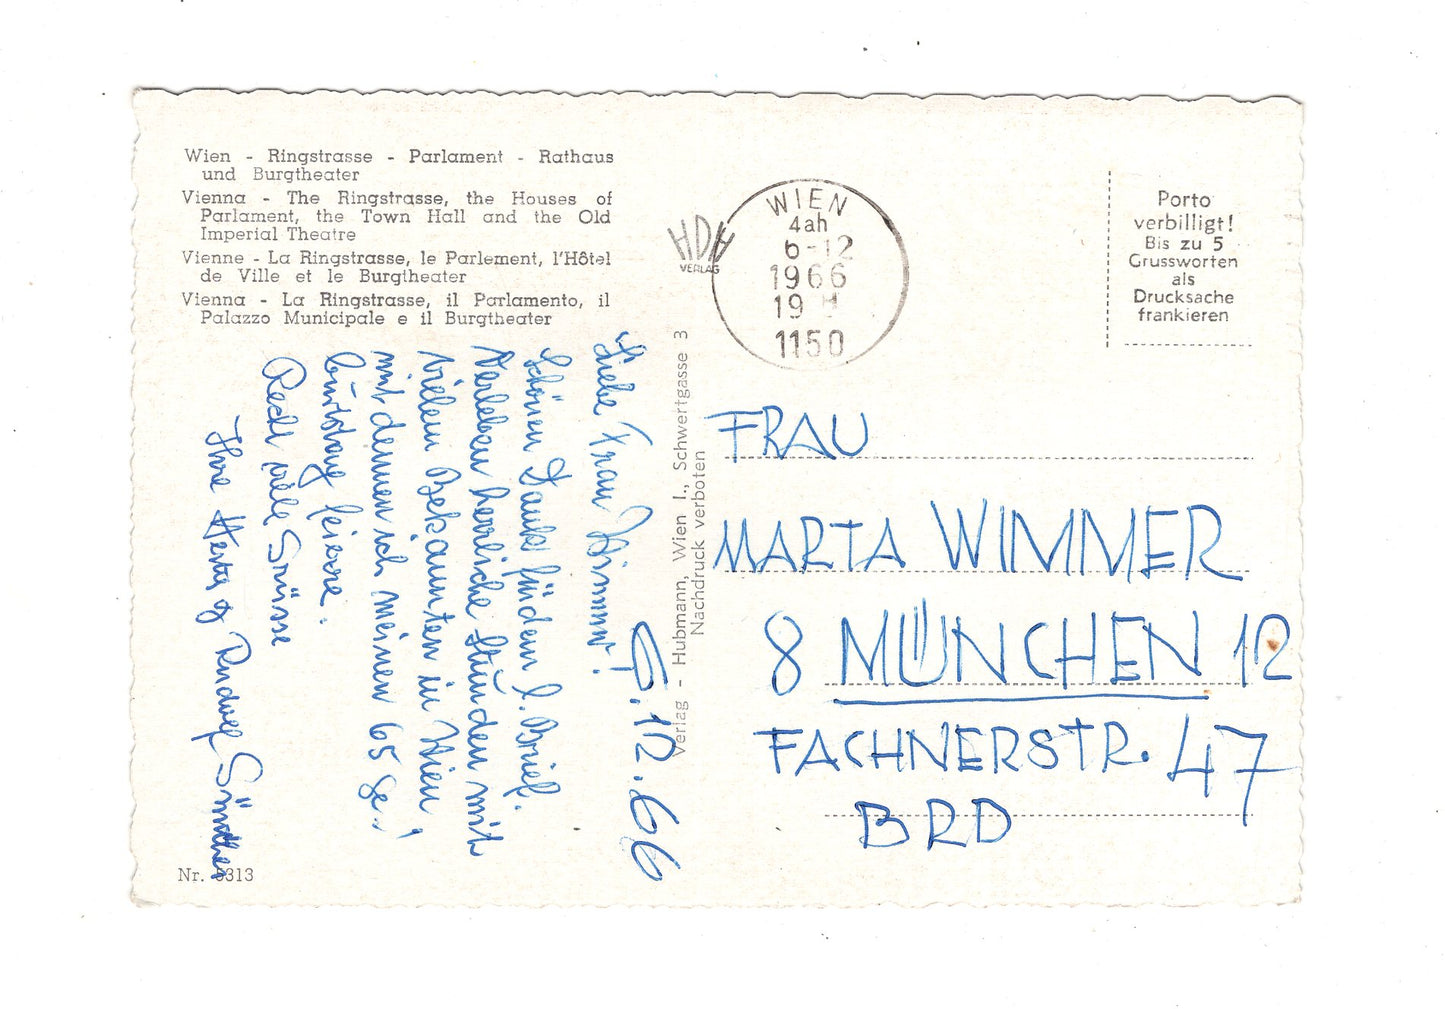 Wien - Ringstrasse - Parlament - Rathaus
und Burgtheater
Vienna - The Ringstrasse, the Houses of
Parlament, the Town Hall and the Old
Imperial Theatre
Vienne - La Ringstrasse, le Parlement, l'Hôtel
de Ville et le Burgtheater
Vienna - La Ringstrasse, il Parlamento, il
Palazzo Municipale e il Burgtheater
HDH
VERLAG
WIEN
4ah
6-12
1966
19
1150
Porto
verbilligt!
Bis zu 5
Grussworten
als
Drucksache
frankieren
6.12.66
Liebe Frau Wimmer!
Schönen Dank für den l. Brief.
Verleben herrliche Stunden mit
vielen Bekannten in Wien,
mit denen ich meinen 65 Ge-
burtstag feiere.
Recht viele Grüsse
Ihre Herta &
Verlag - Hubmann, Wien I., Schwertgasse 3
Nachdruck verboten
FRAU
MARTA WIMMER
8 MÜNCHEN 12
FACHNERSTR. 47
BRD
Nr. 6313